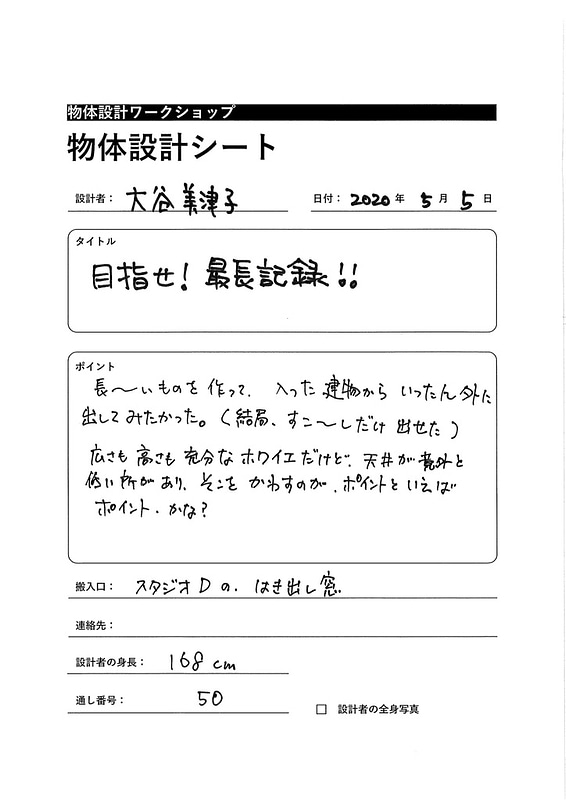 物体設計ワークショップ
物体設計シート
設計者： 大谷美津子 日付： 2020 年 5 月 5 日
タイトル
目指せ! 最長記録!!
ポイント
長〜いものを作って、入った建物からいったん外に
出してみたかった。(結局、すこ〜しだけ出せた)
広さも高さも充分なホワイエだけど、天井が意外と
低い所があり、そこをかわすのが、ポイントといえば
ポイント、かな?
搬入口： スタジオDの、はき出し窓
連絡先：
設計者の身長： 168cm
通し番号： 50
□ 設計者の全身写真